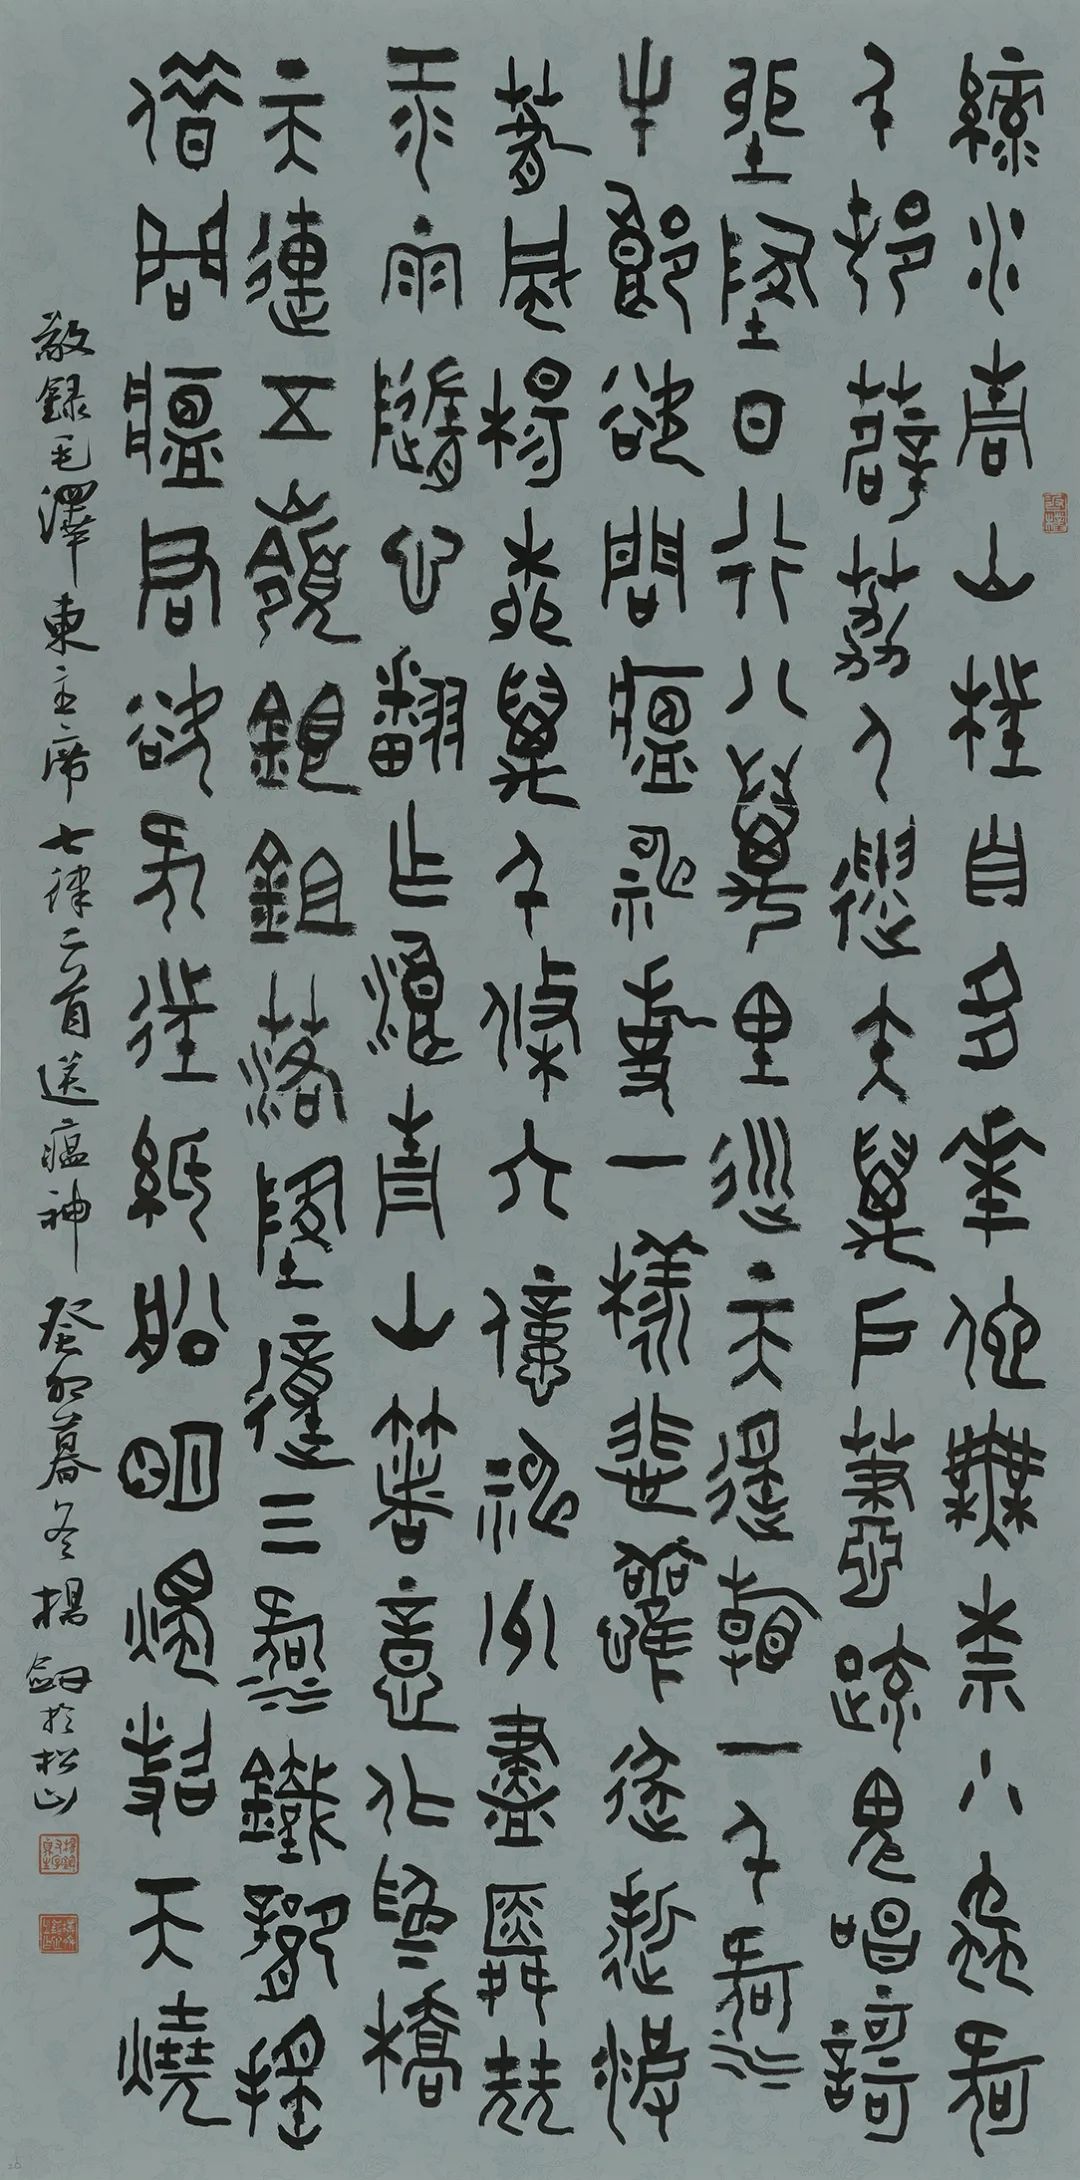 綠水青山枉自多華佗無奈小蟲何
千村薜荔人遺矢萬戶蕭疏鬼唱歌
坐地日行八萬里巡天遙看一千河
牛郎欲問瘟神事一樣悲歡逐逝波
春風楊柳萬千條六億神州盡舜堯
紅雨隨心翻作浪青山著意化為橋
天連五嶺銀鋤落地動三河鐵臂搖
借問瘟君欲何往紙船明燭照天燒
敬録毛澤東主席七律二首送瘟神 癸卯暮冬楊劒於松山